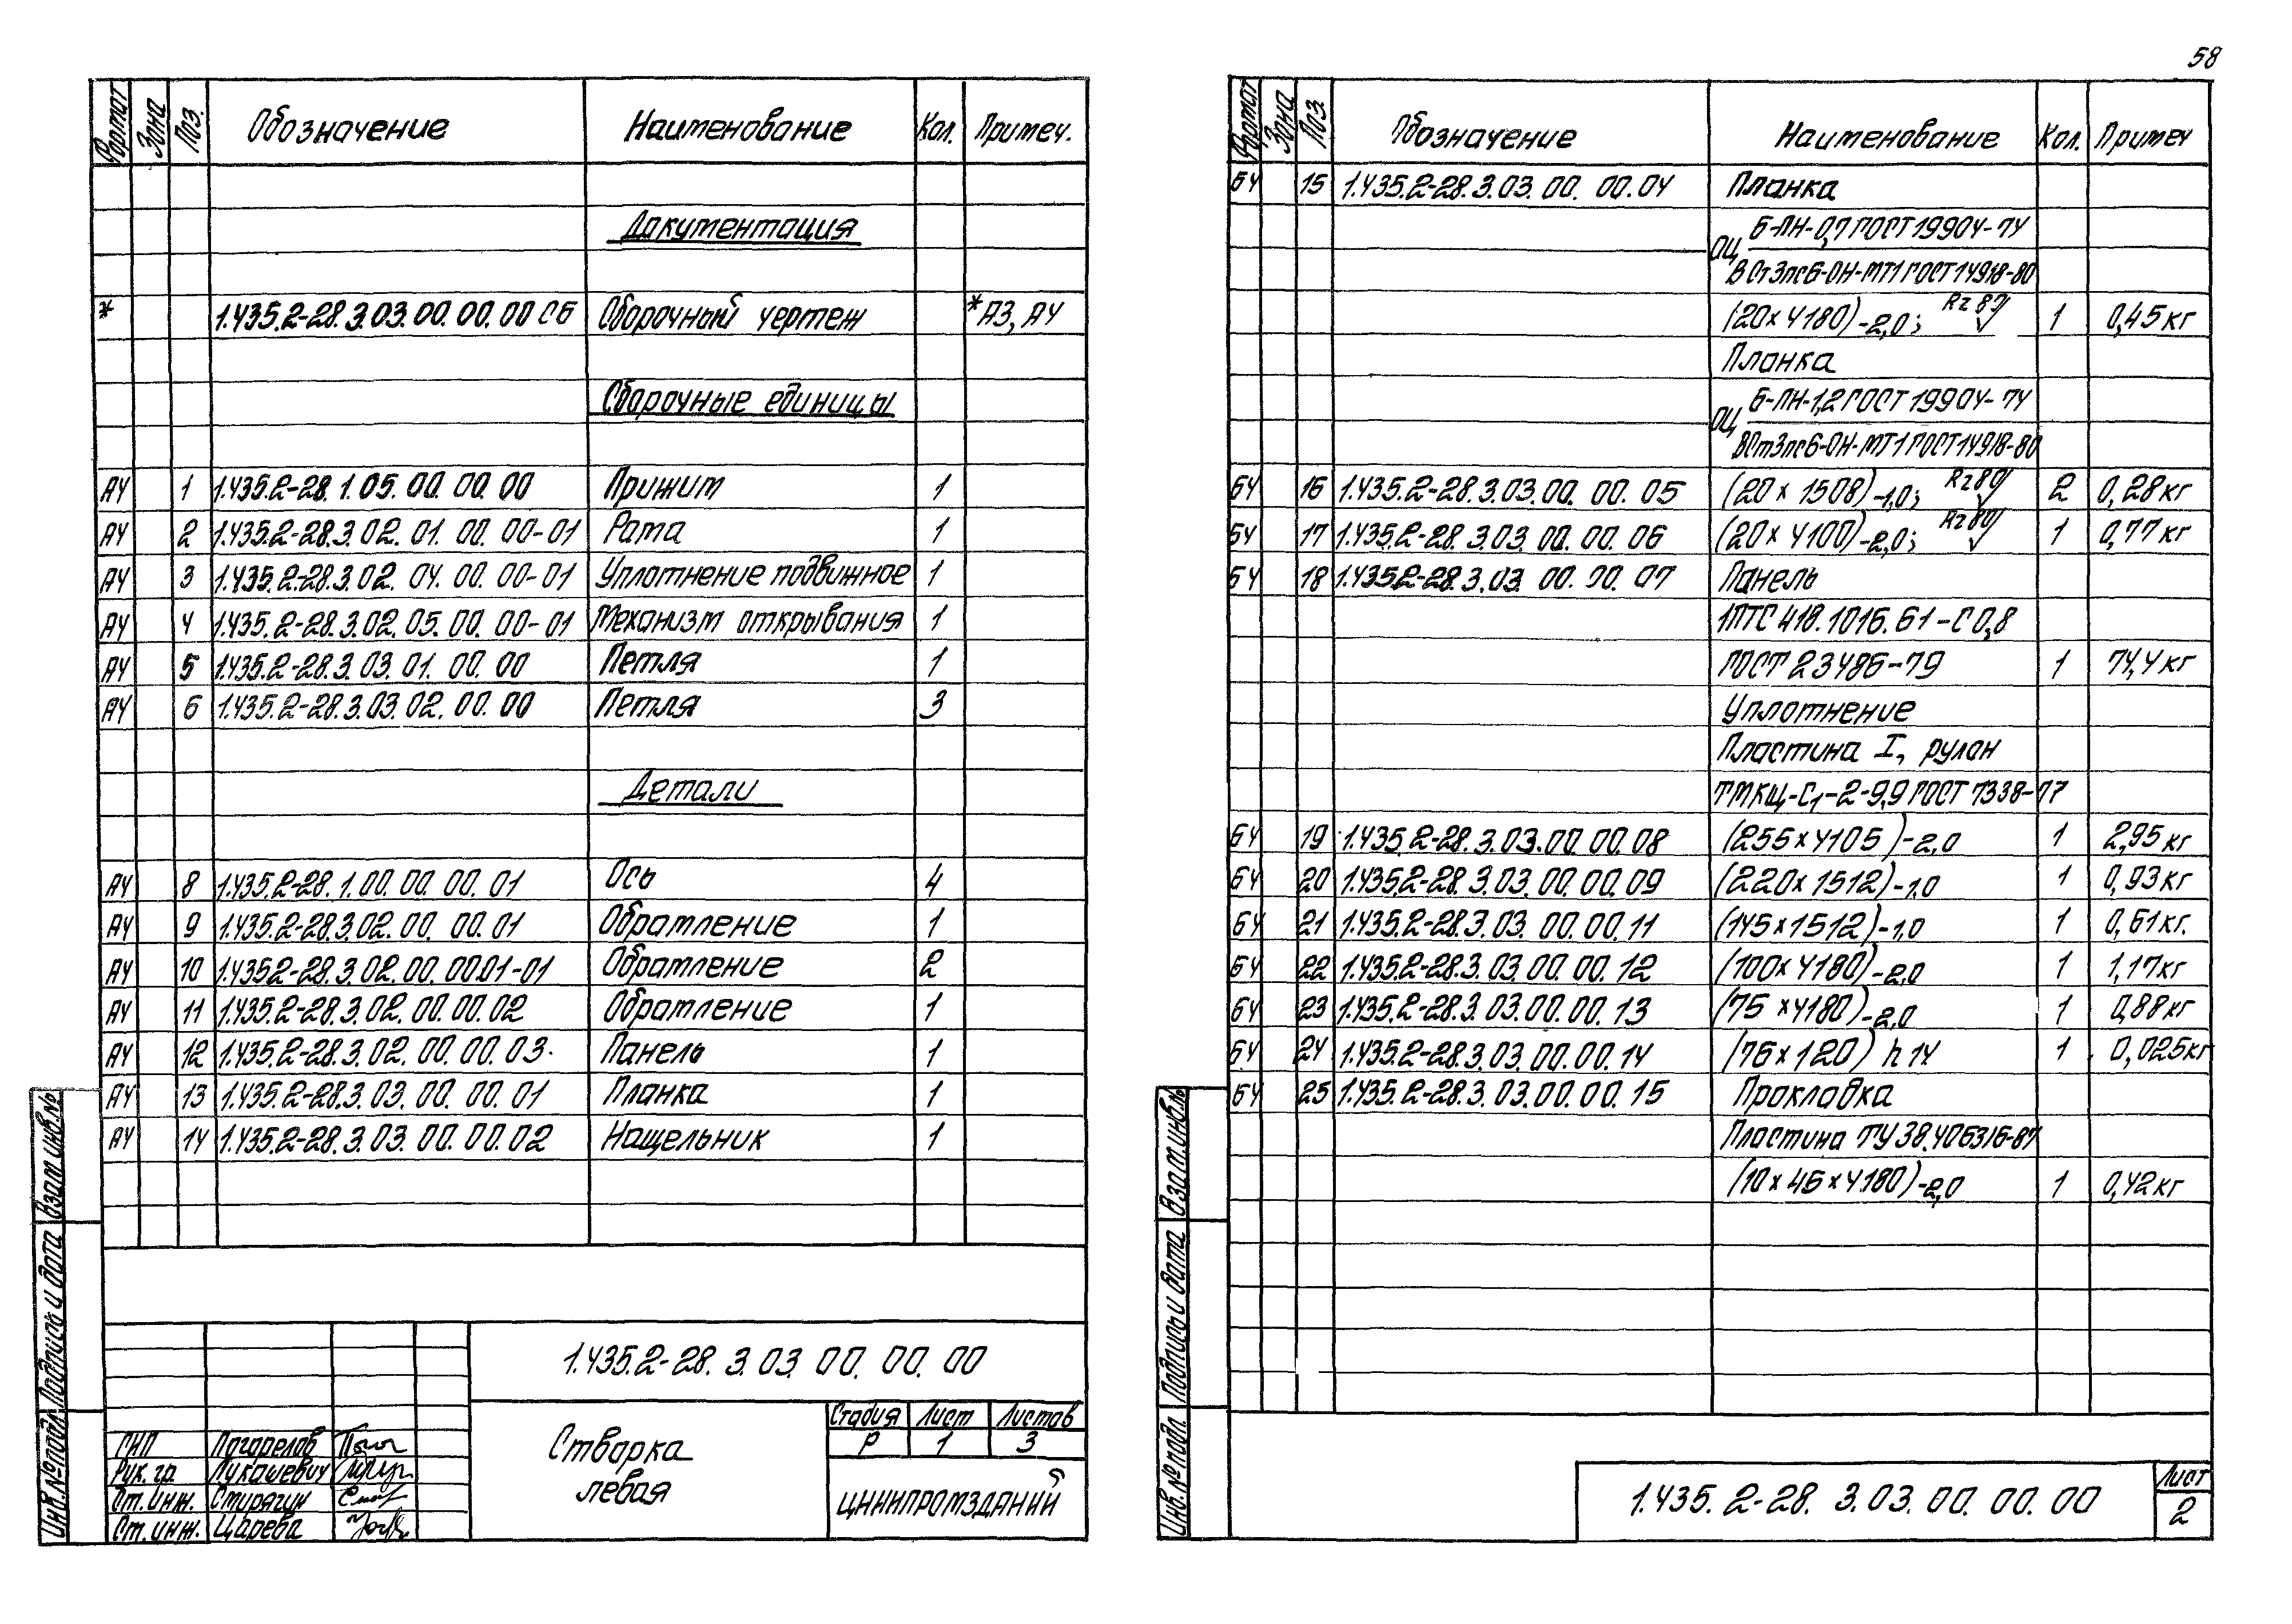 58
Формат Зона Поз. Обозначение Наименование Кол. Примеч.
Документация
* 1.435.2-28.3.03.00.00.00 СБ Сборочный чертеж *А3, А4
Сборочные единицы
А4 1 1.435.2-28.1.05.00.00.00 Прижим 1
А4 2 1.435.2-28.3.02.01.00.00-01 Рама 1
А4 3 1.435.2-28.3.02.04.00.00-01 Уплотнение подвижное 1
А4 4 1.435.2-28.3.02.05.00.00-01 Механизм открывания 1
А4 5 1.435.2-28.3.03.01.00.00 Петля 1
А4 6 1.435.2-28.3.03.02.00.00 Петля 3
Детали
А4 8 1.435.2-28.1.00.00.00.01 Ось 4
А4 9 1.435.2-28.3.02.00.00.01 Обрамление 1
А4 10 1.435.2-28.3.02.00.00.01-01 Обрамление 2
А4 11 1.435.2-28.3.02.00.00.02 Обрамление 1
А4 12 1.435.2-28.3.02.00.00.03. Панель 1
А4 13 1.435.2-28.3.03.00.00.01 Планка 1
А4 14 1.435.2-28.3.03.00.00.02 Нащельник 1
1.435.2-28.3.03.00.00.00
Створка
левая
Стадия Лист Листов
Р 1 3
ЦНИИПРОМЗДАНИЙ
ГИП Погорелов
Рук. гр. Лукашевич
Ст. инж. Смирягин
Ст. инж. Царева
Инв. № подл. Подпись и дата Взам. инв. №
Формат Зона Поз. Обозначение Наименование Кол. Примеч
БЧ 15 1.435.2-28.3.03.00.00.04 Планка
Б-ПН-0,7 ГОСТ 19904-74
ОЦ
ВСт3пс6-ОН-МТ1 ГОСТ 14918-80
(20×4180)-2,0; Rz80 1 0,45 кг
Планка
Б-ПН-1,2 ГОСТ 19904-74
ОЦ
ВСт3пс6-ОН-МТ1 ГОСТ 14918-80
БЧ 16 1.435.2-28.3.03.00.00.05 (20×1508)-1,0; Rz80 2 0,28 кг
БЧ 17 1.435.2-28.3.03.00.00.06 (20×4100)-2,0; Rz80 1 0,77 кг
БЧ 18 1.435.2-28.3.03.00.00.07 Панель
1ПТС 418.1016.Б1-С0,8
ГОСТ 23486-79 1 74,4 кг
Уплотнение
Пластина I, рулон
ТМКЩ-С1-2-9,9 ГОСТ 7338-77
БЧ 19 1.435.2-28.3.03.00.00.08 (255×4105)-2,0 1 2,95 кг
БЧ 20 1.435.2-28.3.03.00.00.09 (220×1512)-1,0 1 0,93 кг
БЧ 21 1.435.2-28.3.03.00.00.11 (145×1512)-1,0 1 0,61 кг.
БЧ 22 1.435.2-28.3.03.00.00.12 (100×4180)-2,0 1 1,17 кг
БЧ 23 1.435.2-28.3.03.00.00.13 (75×4180)-2,0 1 0,88 кг
БЧ 24 1.435.2-28.3.03.00.00.14 (76×120) h14 1 0,025 кг
БЧ 25 1.435.2-28.3.03.00.00.15 Прокладка
Пластина ТУ 38.406316-87
(10×45×4180)-2,0 1 0,42 кг
1.435.2-28.3.03.00.00.00
Лист
2
Инв. № подл. Подпись и дата Взам. инв. №